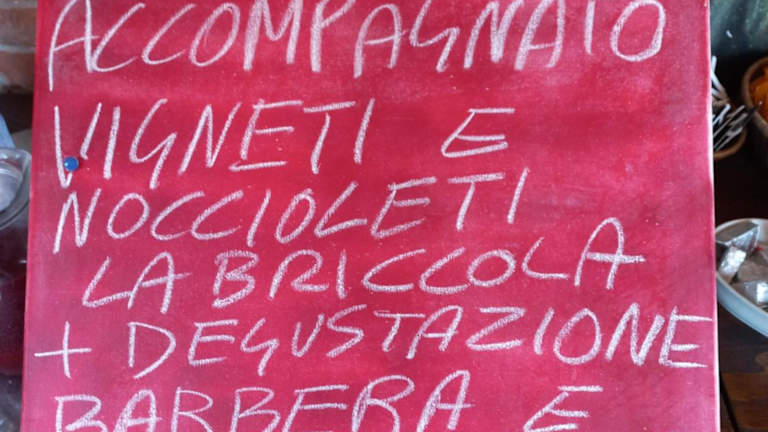 ACCOMPAGNATO
VIGNETI E
NOCCIOLETI
LA BRICCOLA
+ DEGUSTAZIONE
BARBERA E